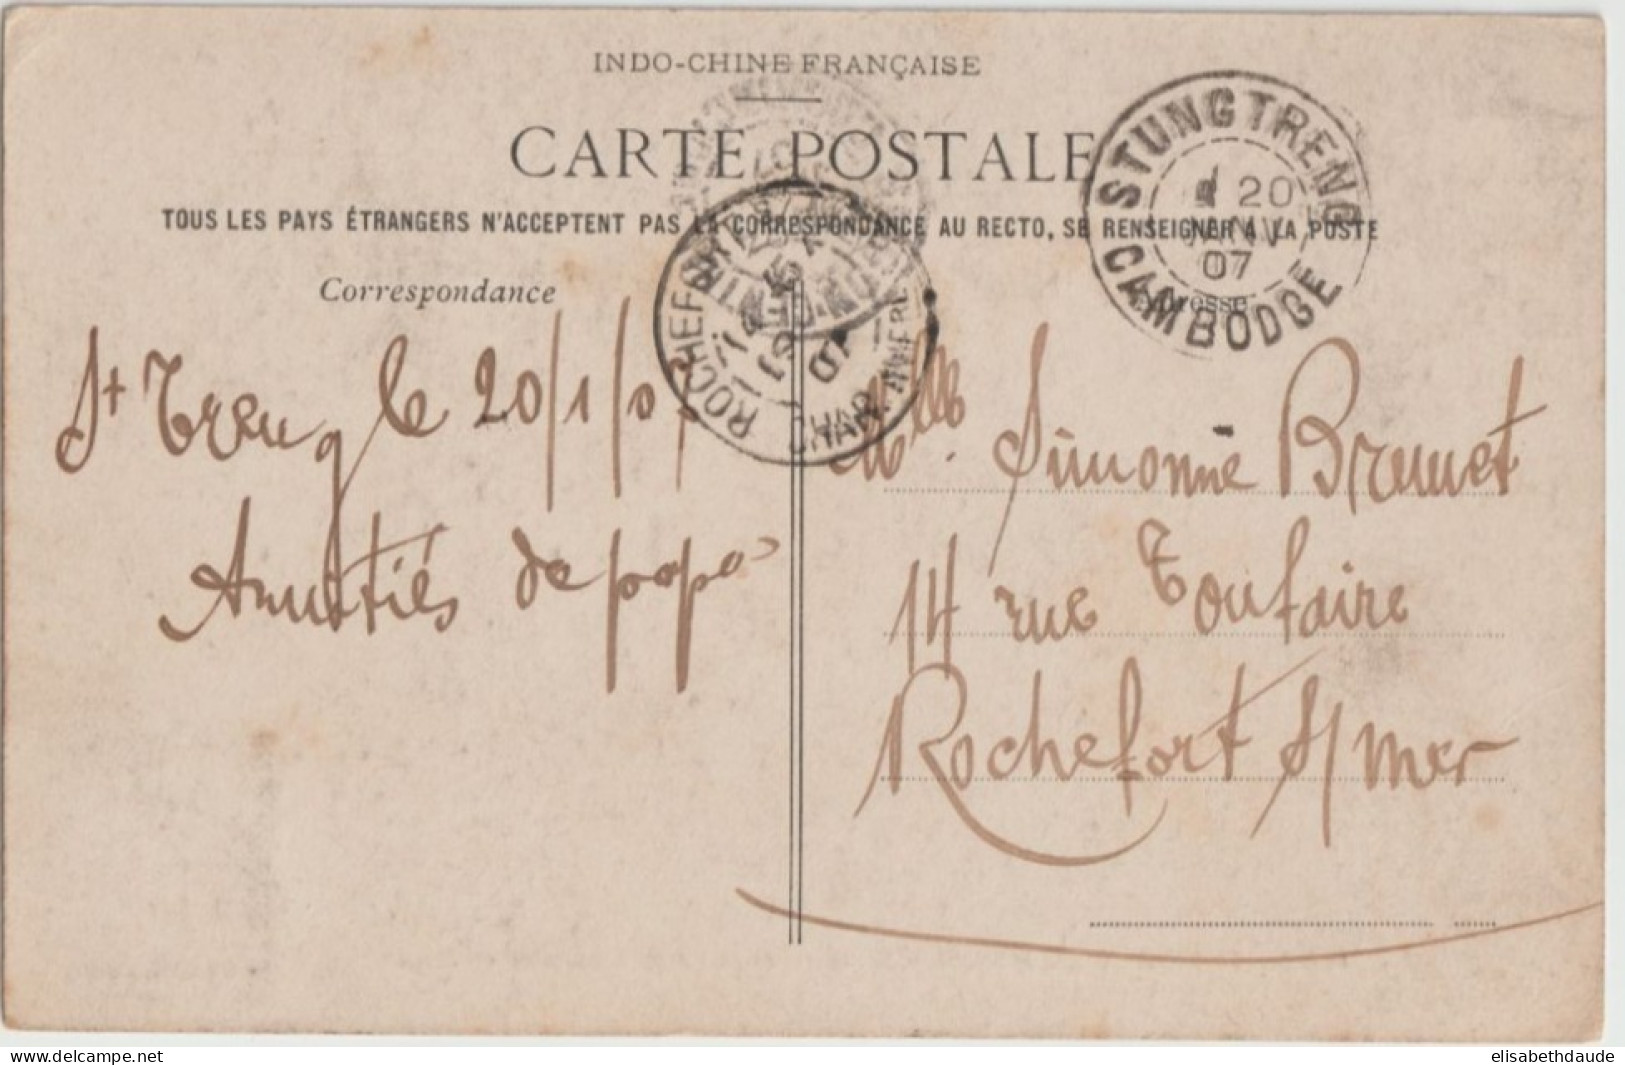 INDO-CHINE FRANÇAISE
CARTE POSTALE
TOUS LES PAYS ÉTRANGERS N'ACCEPTENT PAS LA CORRESPONDANCE AU RECTO, SE RENSEIGNER A LA POSTE
STUNGTRENG
20
JANV
07
CAMBODGE
Correspondance
Adresse
ROCHEFORT
CHAR. INFERE
07
St Treng le 20/1/07
Amitiés de papa
Mlle. Simonne Brunet
14 rue Toufaire
Rochefort s/mer
delcampe.net
elisabethdaude